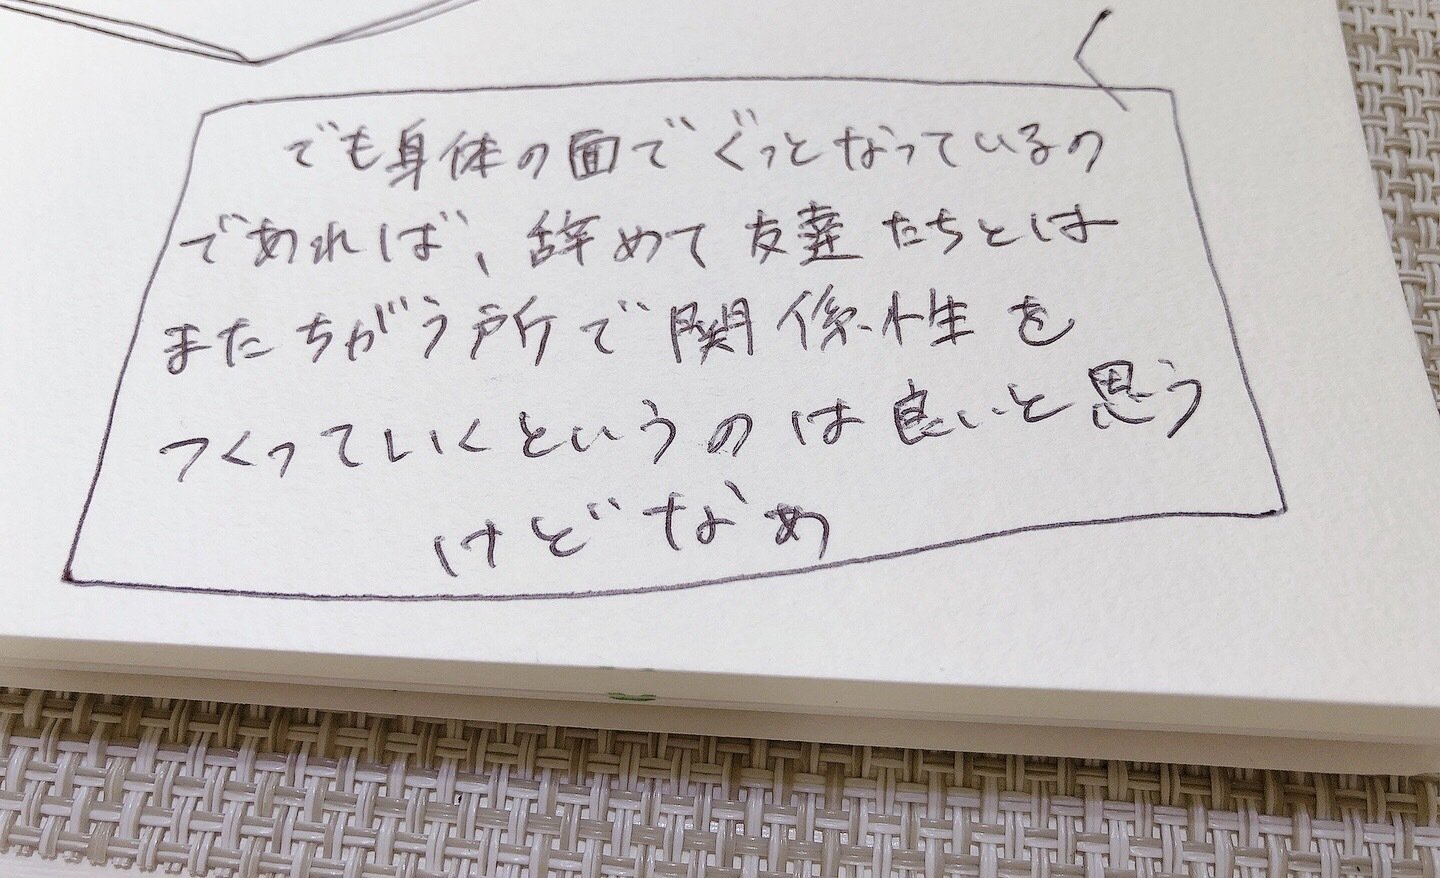 でも身体の面でぐっとなっているの
であれば、辞めて友達たちとは
またちがう所で関係性を
つくっていくというのは良いと思う
けどなぁ